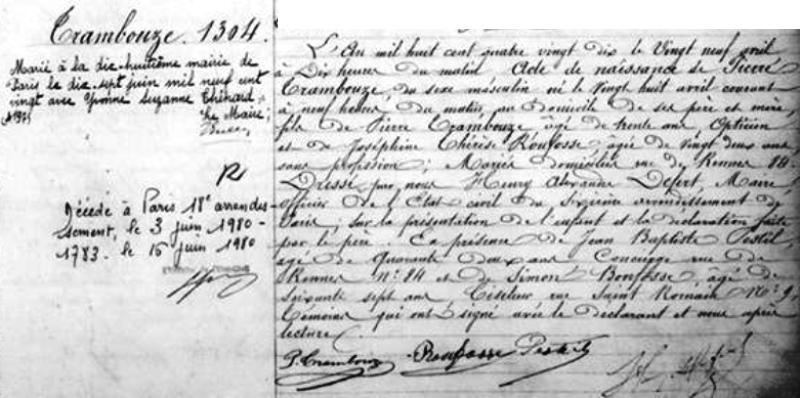 Trambouze. 1304.
Marié à la dix-huitième mairie de
Paris le dix-sept juin mil neuf cent
vingt avec Yvonne Suzanne Thénard
Le Maire,
R
Décédé à Paris 18e arrondis-
sement, le 3 juin 1980-
1783. le 16 juin 1980
L'An mil huit cent quatre vingt dix le Vingt neuf avril
à Dix heures du matin Acte de naissance de Pierre
Trambouze, du sexe masculin né le vingt huit avril courant
à neuf heures du matin, au domicile de ses père et mère,
fils de Pierre Trambouze âgé de trente ans, Opticien
et de Joséphine Thérèse Ronfosse âgée de vingt deux ans
sans profession; Mariés domiciliés rue de Rennes 84-
Dressé par nous Henry Alexandre Defert, Maire
officier de l'Etat civil du Sixième arrondissement de
Paris; sur la présentation de l'enfant et la déclaration faite
par le père. En présence de Jean Baptiste Pestil,
âgé de Quarante deux ans Concierge rue de
Rennes no. 84 et de Simon Bonfosse, âgé de
Soixante sept ans Ciseleur rue Saint Romain No. 9,
Témoins qui ont signé avec le déclarant et nous après
lecture.
P. Trambouze Ronfosse Pestil